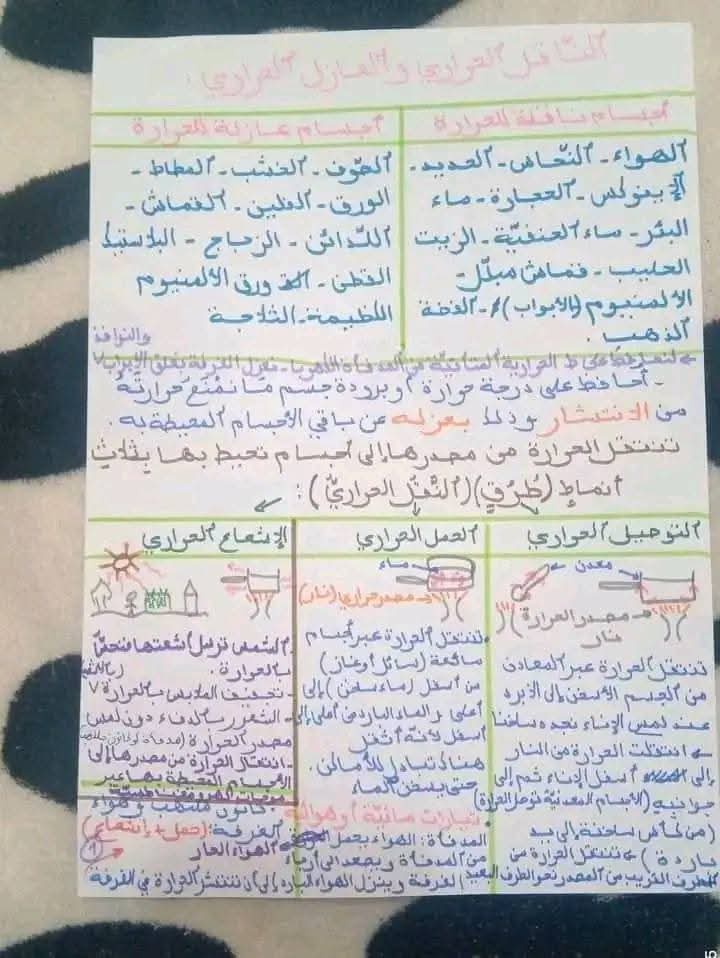 النّاقل الحراري والعازل الحراري.
أجسام ناقلة للحرارة
الهواء - النّحاس - الحديد -
الإينوكس - الحجارة - ماء
البئر - ماء الحنفيّة - الزيت
الحليب - قماش مبلّل -
الألمنيوم (الأبواب) - الفضة
الذهب.
أجسام عازلة للحرارة
الصّوف - الخشب - المطاط -
الورق - الفلين - القماش -
اللّدائن - الزجاج - البلاستيك
القطن - ورق الألمنيوم
الثلاجة
والنوافذ
المدفأة نعزل الغرفة بغلق الأبواب
- أحافظ على درجة حرارة أو برودة جسم ما نمنع حرارته
من الانتشار وذلك بعزله عن باقي الأجسام المحيطة به.
تنتقل الحرارة من مصدرها إلى أجسام تحيط بها بثلاث
أنماط (طرق) (النّقل الحراريّ):
التوصيل الحراري
معدن
مصدر الحرارة
نار
تنتقل الحرارة عبر المعادن
من الجسم الأسخن إلى الأبرد
عند لمس الإناء نجده ساخنا
انتقلت الحرارة من النار
إلى أسفل الإناء ثم إلى
جوانبه (الأجسام المعدنية توصل الحرارة)
(من كأس ساخنة إلى يد
باردة) تنتقل الحرارة من
الطرف القريب من المصدر نحو الطرف البعيد
الحمل الحراري
ماء
مصدر حراري (نار)
تنتقل الحرارة عبر أجسام
مائعة (سائل أو غاز)
من أسفل (ماء ساخن) إلى
أعلى و الماء البارد من أعلى إلى
أسفل لأنه أثقل
هناك تبادل للأماكن.
حتى يسخن الماء
تيارات مائيّة أو هوائيّة
المدفأة: الهواء يحمل الهواء الحار
من المدفأة ويصعد إلى أرجاء
الغرفة وينزل الهواء البارد إلى أن تنتشر الحرارة في الغرفة
الإشعاع الحراري
الشمس ترسل أشعتها فنحسّ
بالحرارة.
- تجفيف الملابس بالحرارة
- الشعور بالدفء دون لمس
مصدر الحرارة
- انتقال الحرارة من مصدرها إلى
الأجسام المحيطة بها عبر
موجات كهرومغناطيسيّة
كانون ملتهب وهواء
الغرفة: (حمل + إشعاع)
1